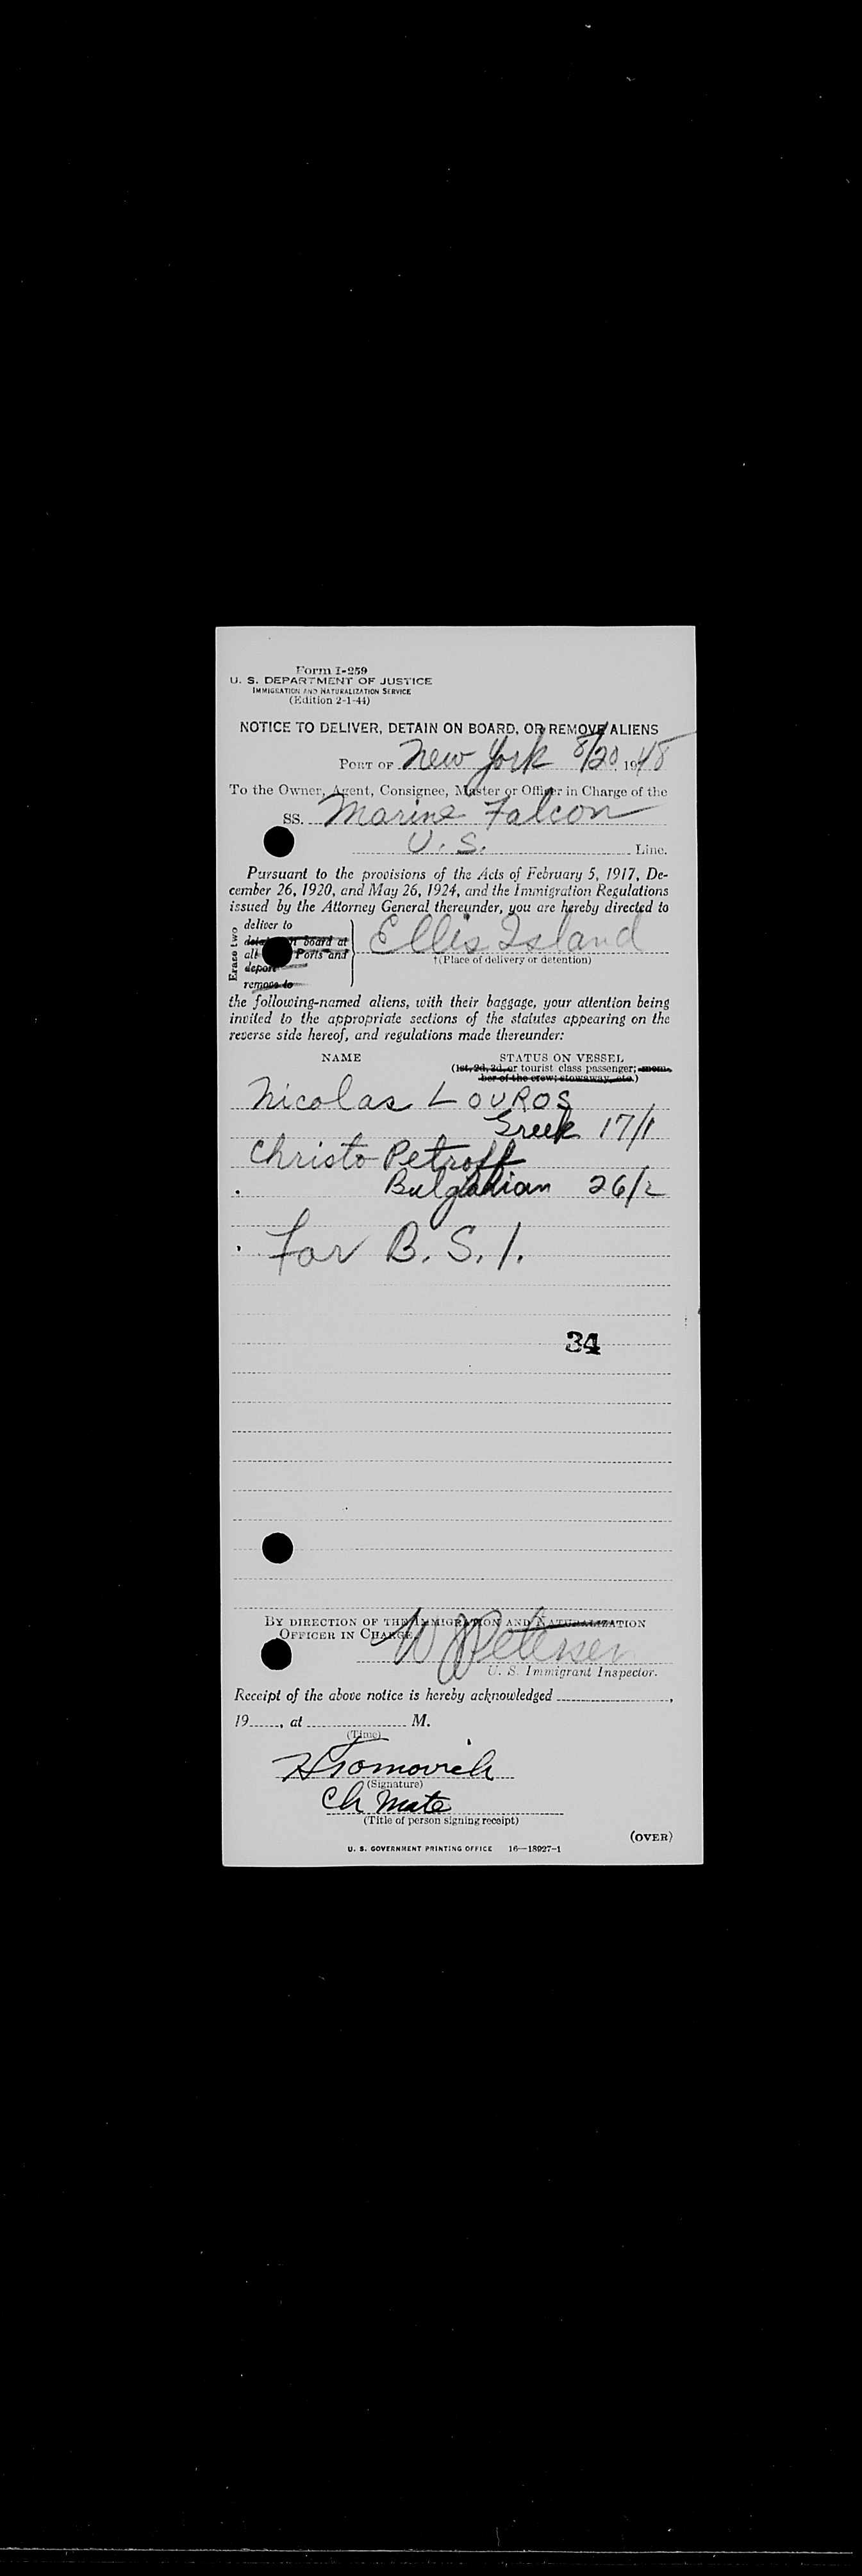 Form I-259
U. S. DEPARTMENT OF JUSTICE
IMMIGRATION AND NATURALIZATION SERVICE
(Edition 2-1-44)
NOTICE TO DELIVER, DETAIN ON BOARD, OR REMOVE ALIENS
PORT OF New York 8/20, 1948
To the Owner, Agent, Consignee, Master or Officer in Charge of the
SS. Marine Falcon
U. S. Line.
Pursuant to the provisions of the Acts of February 5, 1917, De-
cember 26, 1920, and May 26, 1924, and the Immigration Regulations
issued by the Attorney General thereunder, you are hereby directed to
Erase two
deliver to
board at
all Ports and
deport
remove to
Ellis Island
†(Place of delivery or detention)
the following-named aliens, with their baggage, your attention being
invited to the appropriate sections of the statutes appearing on the
reverse side hereof, and regulations made thereunder:
NAME STATUS ON VESSEL
(1st, 2d, 3d, or tourist class passenger; mem-
ber of the crew; stowaway, etc.)
Nicolas LOUROS
Greek 17/1
Christo Petroff
Bulgarian 26/2
For B. S. I.
34
BY DIRECTION OF THE IMMIGRATION AND NATURALIZATION
OFFICER IN CHARGE.
W Petersen
U. S. Immigrant Inspector.
Receipt of the above notice is hereby acknowledged ,
19 , at M.
(Time)
(Signature)
Ch Mate
(Title of person signing receipt)
(OVER)
U. S. GOVERNMENT PRINTING OFFICE 16—18927-1